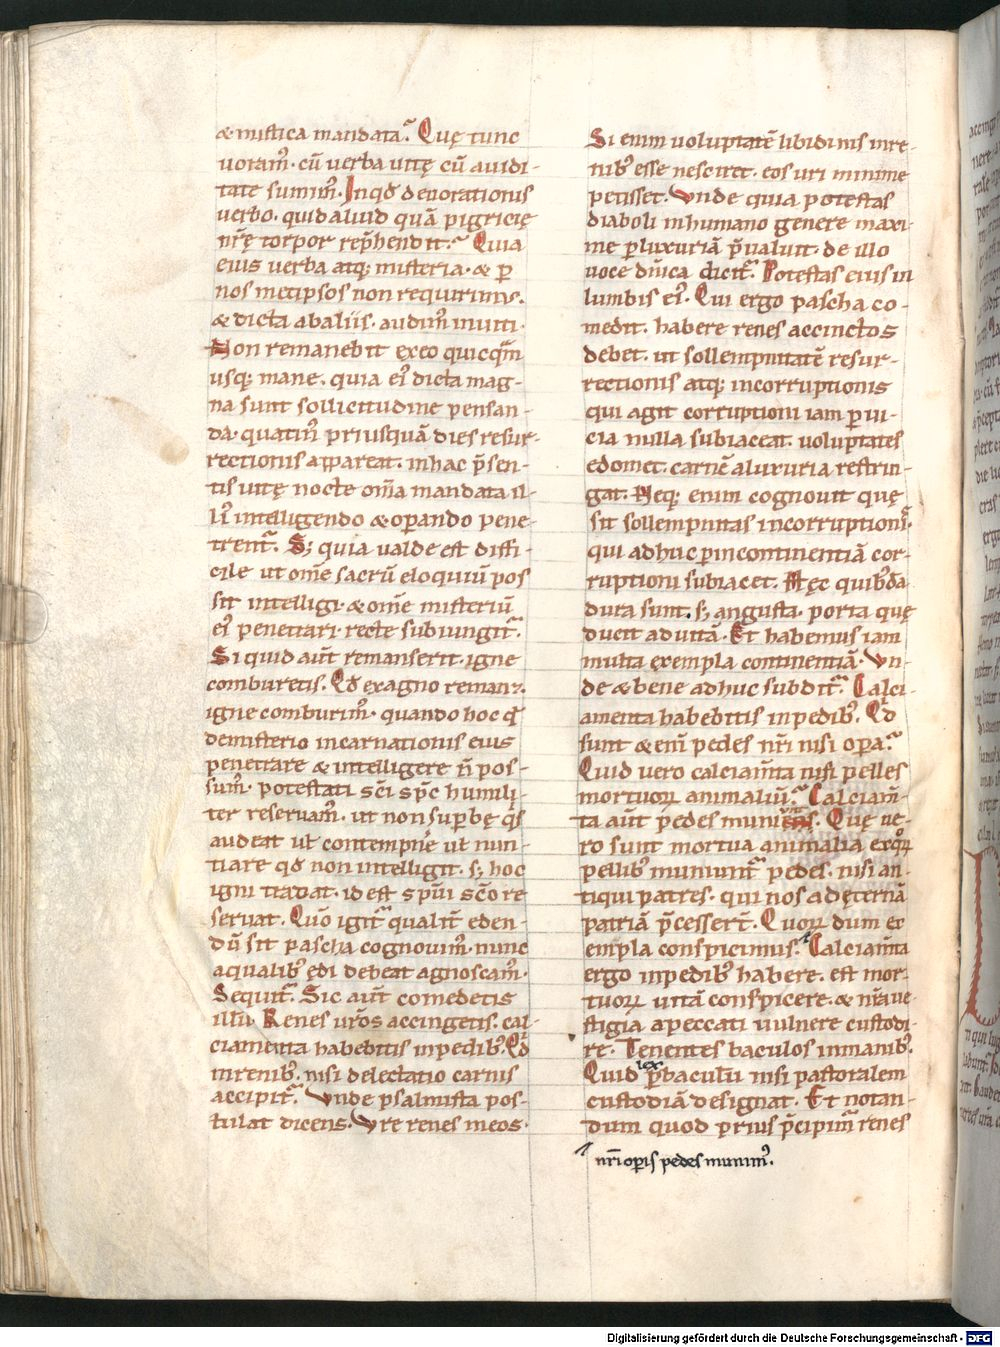 & mistica mandata. Quę tunc
uoram᷒. cū uerba uitę cū auidi-
tate sumim᷒. In qđ deuorationis
uerbo. quid aliud quā pigricię
nr̄ę torpor rep̄hendit. Quia
eius uerba atq; misteria. & p̱
nos metipsos non requirim᷒.
& dicta ab aliis. audim᷒ inuiti.
Non remanebit ex eo quicq̄m
usq; mane. quia ei᷒ dicta mag-
na sunt sollicitudine pensan-
da. quatin᷒ priusquā dies resur-
rectionis appareat. in hac p̄sen-
tis uitę nocte om̄a mandata il-
li᷒ intelligendo & op̱ando pene-
trent᷑. S; quia ualde est diffi-
cile ut om̄e sacrū eloquiū pos
sit intelligi. & om̄e misteriū
ei᷒ penetrari. recte subiungit᷑.
Si quid aūt remanserit. igne
comburetis. Qđ ex agno remanȝ.
igne comburim᷒. quando hoc qđ
de misterio incarnationis eius
penetrare & intelligere n̄ pos-
sum᷒. potestati sc̄i sp̄c humili-
ter reseruam᷒. ut non sup̱bę q̇s
audeat ul̵ contempn̄e ul̵ nun-
tiare qđ non intelligit. s; hoc
igni tradat. id est sp̄ui sc̄o re
seruat. Quō igit᷑ qualit᷑ eden-
dū sit pascha cognouim᷒. nunc
a qualib᷒ ędi debeat agnoscam᷒.
Sequit᷑. Sic aūt comedetis
illū. Renes ur̄os accingetis. cal-
ciamenta habebitis in pedib᷒. Qđ
in renib᷒. nisi delectatio carnis
accipit᷑. Vnde psalmista pos-
tulat dicens. Vre renes meos.
Si enim uoluptatē libidinis in re-
nib᷒ esse nesciret. eos uri minime
petisset. Vnde quia potestas
diaboli in humano genere maxi-
me p̱ luxuriā p̄ualuit. de illo
uoce dn̄ica dicit᷑. Potestas eius in
lumbis ei᷒. Qui ergo pascha co-
medit. habere renes accinctos
debet. ut sollempnitatē resur-
rectionis atq; incorruptionis
qui agit corruptioni iam p̱ ui-
cia nulla subiaceat. uoluptates
edomet. carnē a luxuria restrin-
gat. Neq; enim cognouit quę
sit sollempnitas incorruptionis.
qui adhuc p̱ incontinentiā cor-
ruptioni subiacet. Hęc quib᷒dā
dura sunt. s; angusta. porta quę
ducit ad uitā. Et habemus iam
multa exempla continentiā. Vn-
de & bene adhuc subdit᷑. Calci-
amenta habebitis in pedib᷒. Qđ
sunt & enī pedes nr̄i nisi op̱a.
Quid uero calciam̄ta nisi pelles
mortuoꝝ animaliū. Calciam̄-
ta aūt pedes muniunt. Quę ue-
ro sunt mortua animalia ex quoꝝ
pellib᷒ muniunt᷑ pedes. nisi an-
tiqui patres. qui nos ad ęternā
patriā p̄cessert̄. Quoꝝ dum ex
empla conspicimus. Calciam̄ta
ergo in pedib᷒ habere. est mor-
tuoꝝ uitā conspicere. & nr̄a ue-
stigia a peccati uulnere custodi-
re. Tenentes baculos in manib᷒.
Quid lex p̱ baculū nisi pastoralem
custodiā designat. Et notan-
dum quod prius p̄cipim᷑ renes
nr̄i op̱is pedes munim᷒.
Digitalisierung gefördert durch die Deutsche Forschungsgemeinschaft - DFG